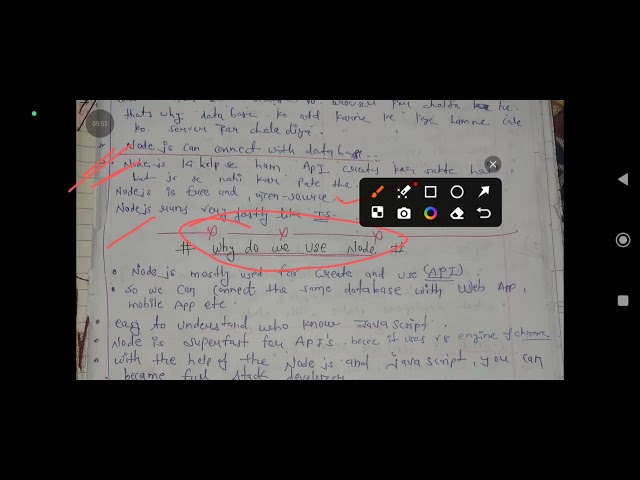 05:53
thats why data base ko add karne ke liye hamne
ko server par chala diya.
Node.js can connect with database...
Node.js ki help se ham API create kar sakte hai
but js se nahi kar pate the
Node.js is free and open-source.
Node.js runs very fastly like JS.
# Why do we use Node #
Node.js mostly used for create and use (API).
so we can connect the same database with Web App,
mobile App etc.
easy to understand who know JavaScript.
Node is superfast for API's. becoz it uses v8 engine of chrome
with the help of the Node js and javascript, you can
became full stack developer